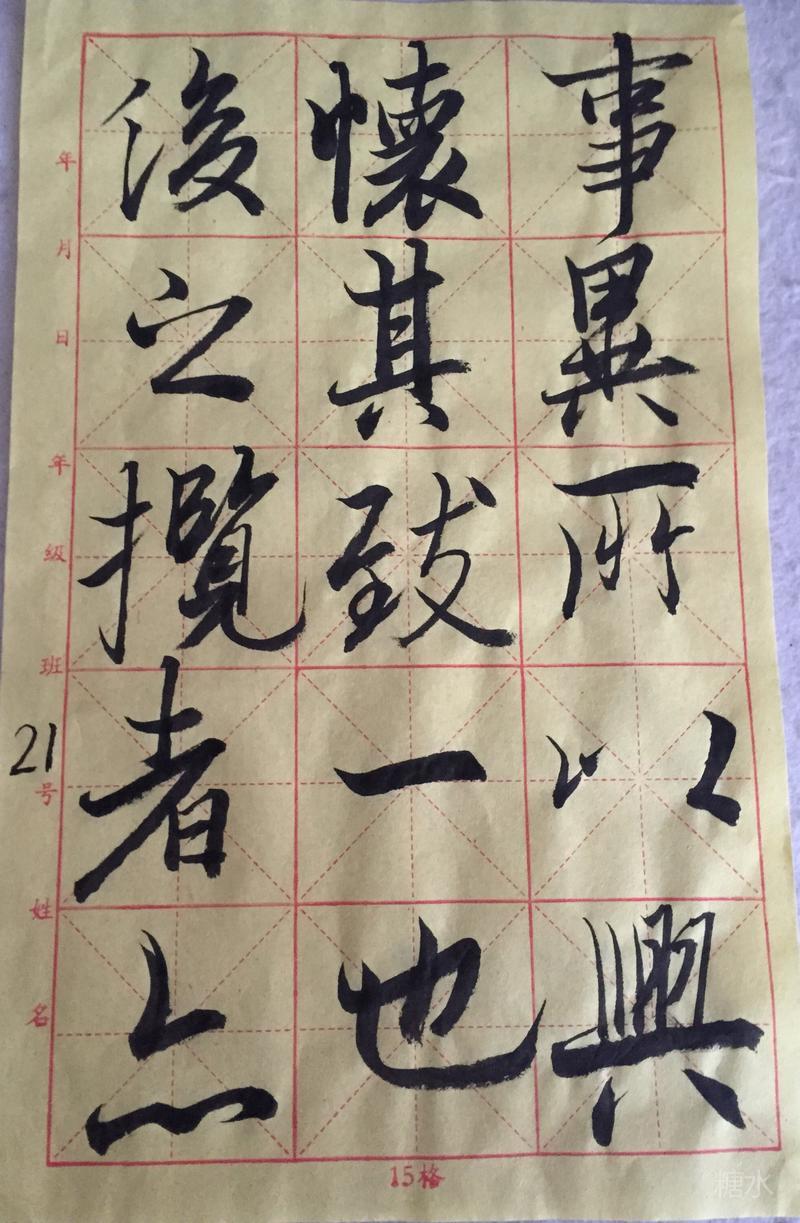 事異所以興
懷其致一也
後之攬者亦
年
月
日
年
級
班
21
号
姓
名
15格
糖水